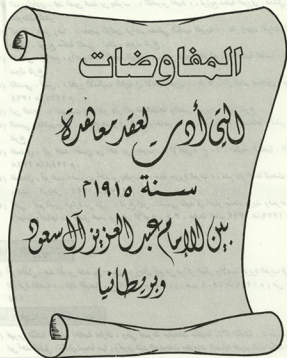 المفاوضات
التي أدت لعقد معاهدة
سنة ١٩١٥م
بين الإمام عبد العزيز آل سعود
وبريطانيا